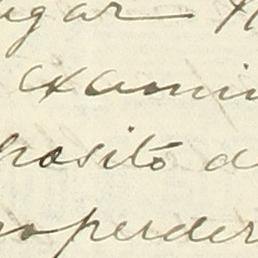 ugar
exami
posito d
no perder